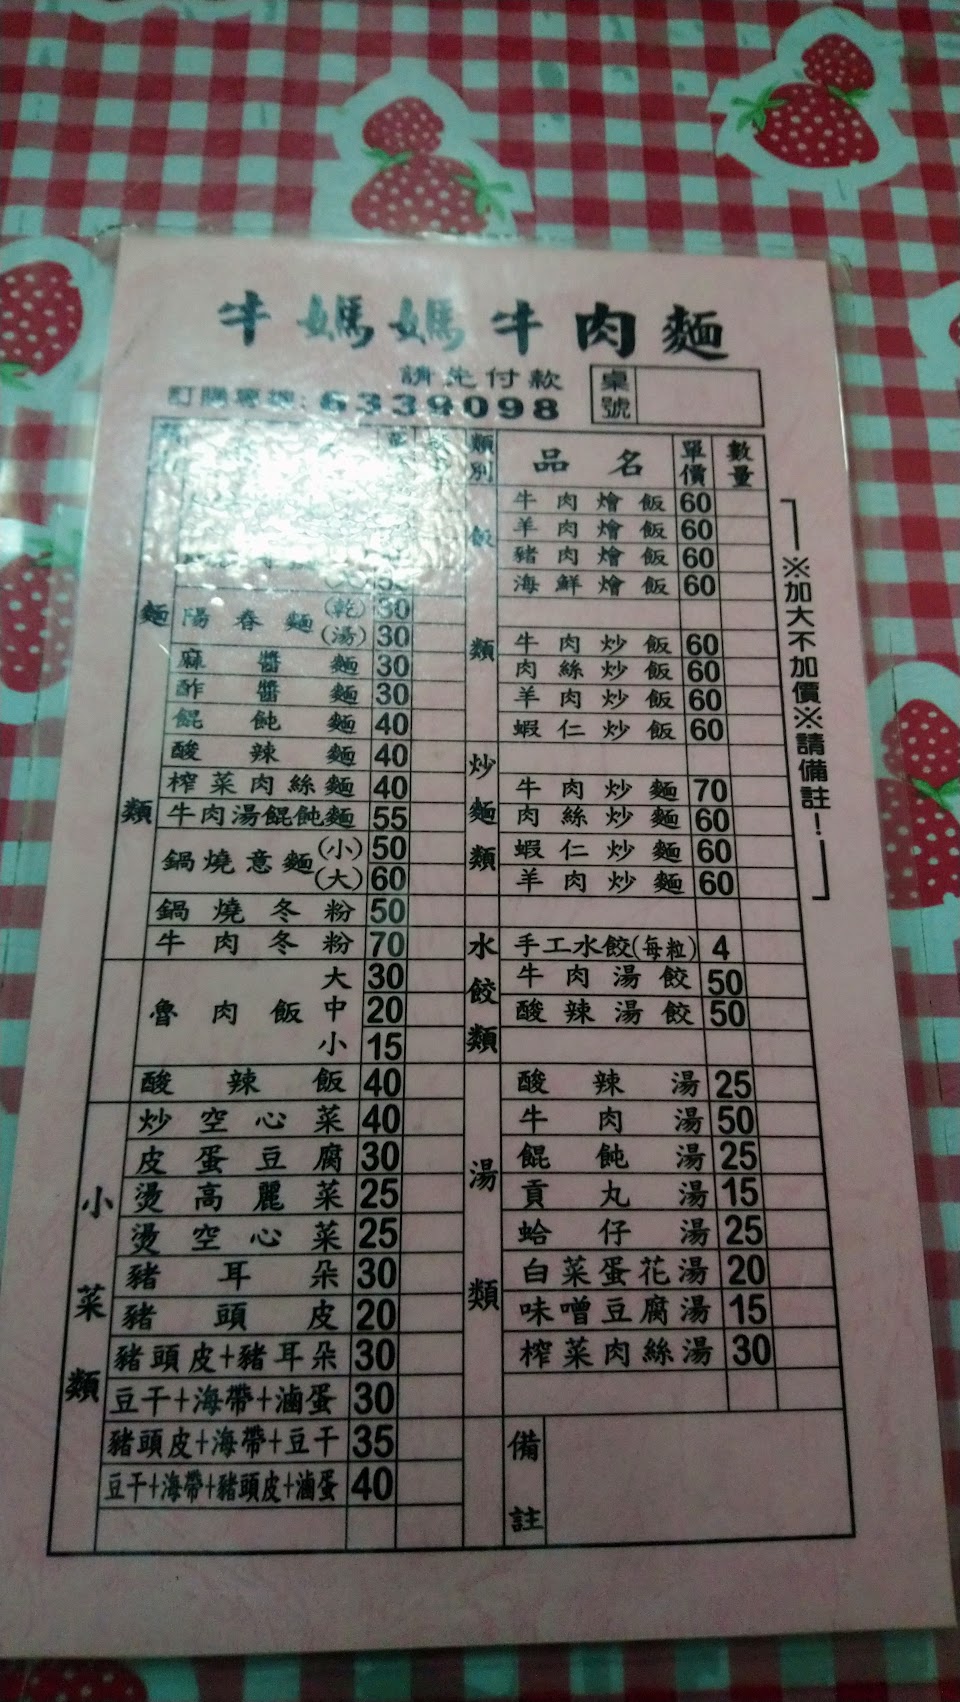 牛媽媽牛肉麵
請先付款
訂購專線:6339098
桌號
麵類
陽春麵(乾)30
(湯)30
麻醬麵30
酢醬麵30
餛飩麵40
酸辣麵40
榨菜肉絲麵40
牛肉湯餛飩麵55
鍋燒意麵(小)50
(大)60
鍋燒冬粉50
牛肉冬粉70
魯肉飯大30
中20
小15
酸辣飯40
小菜類
炒空心菜40
皮蛋豆腐30
燙高麗菜25
燙空心菜25
豬耳朵30
豬頭皮20
豬頭皮+豬耳朵30
豆干+海帶+滷蛋30
豬頭皮+海帶+豆干35
豆干+海帶+豬頭皮+滷蛋40
類別 品名 單價 數量
飯類
牛肉燴飯60
羊肉燴飯60
豬肉燴飯60
海鮮燴飯60
牛肉炒飯60
肉絲炒飯60
羊肉炒飯60
蝦仁炒飯60
炒麵類
牛肉炒麵70
肉絲炒麵60
蝦仁炒麵60
羊肉炒麵60
水餃類
手工水餃(每粒)4
牛肉湯餃50
酸辣湯餃50
湯類
酸辣湯25
牛肉湯50
餛飩湯25
貢丸湯15
蛤仔湯25
白菜蛋花湯20
味噌豆腐湯15
榨菜肉絲湯30
備註
※加大不加價※請備註!